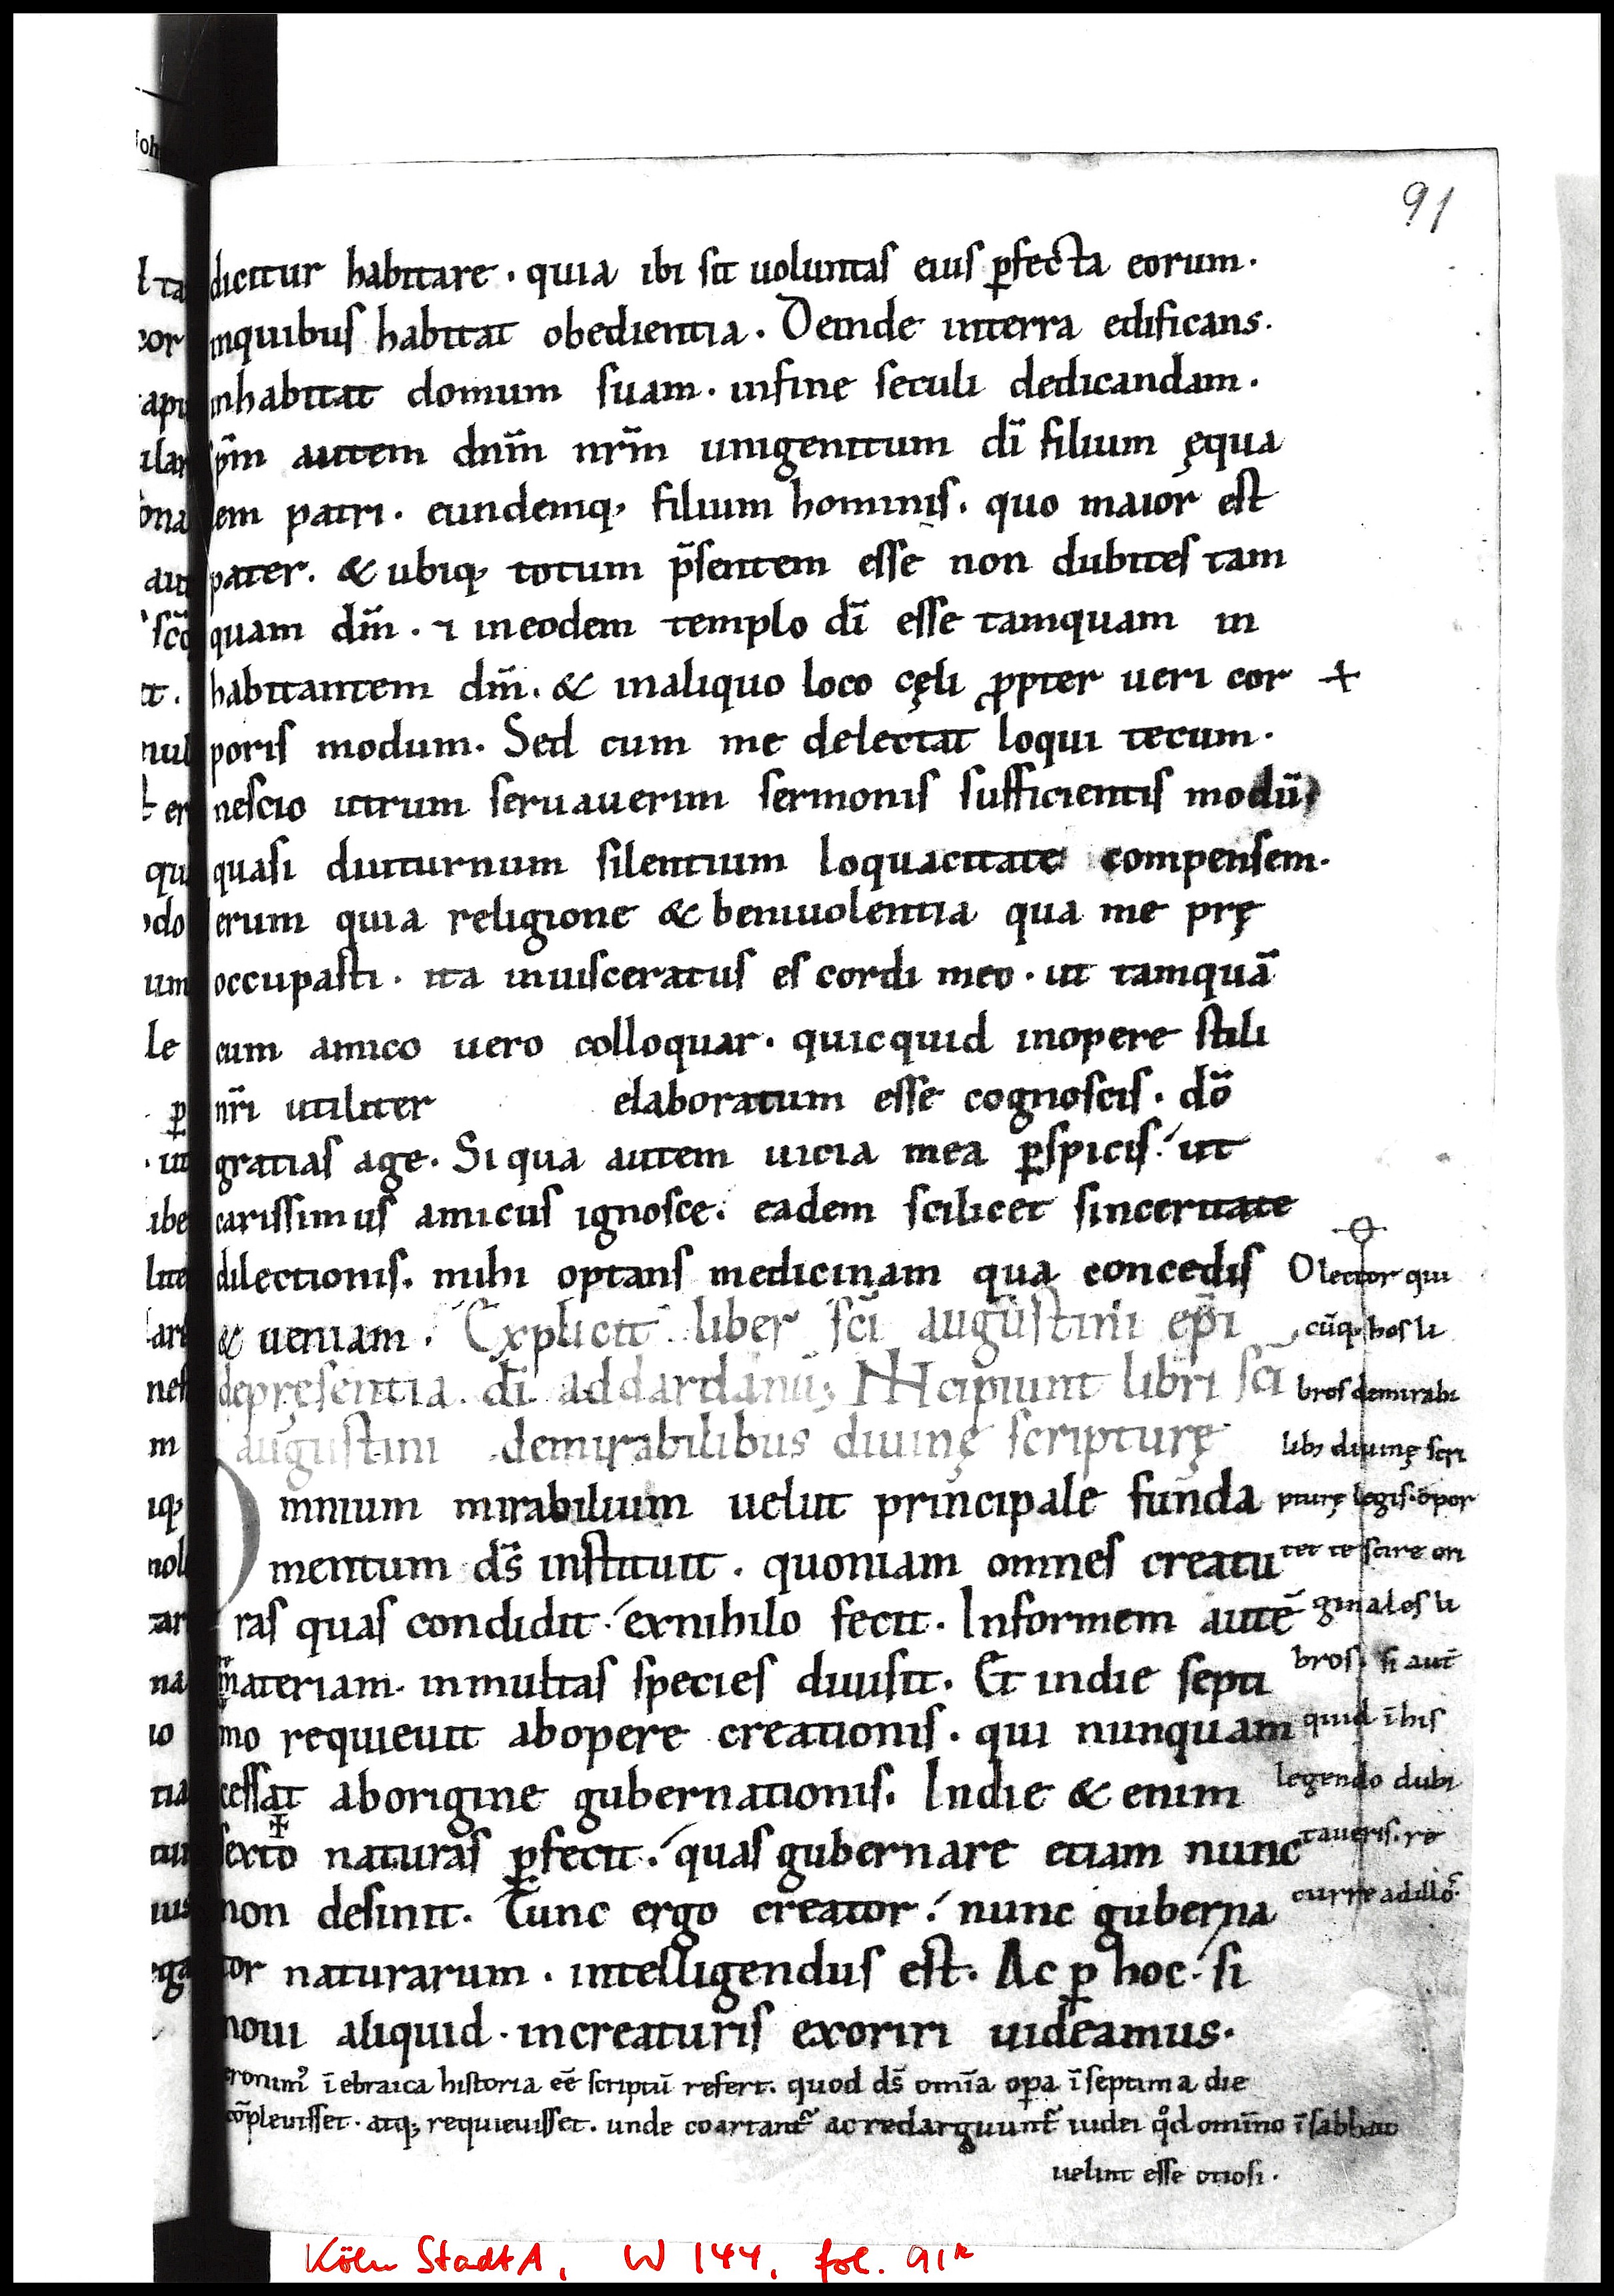 91
dicitur habitare · quia ibi sit uoluntas eius ꝑfecta eorum ·
inquibus habitat obedientia · Deinde interra edificans ·
inhabitat domum suam · infine seculi dedicandam ·
xp̄m autem dn̄m nr̄m unigenitum dī filium ęqua
lem patri · eundemq; filium hominis · quo maior est
pater · & ubiq; totum p̄sentem esse non dubites tam
quam dm̄ · ⁊ ineodem templo dī esse tamquam in
habitantem dm̄ · & inaliquo loco cęli ꝓpter ueri cor +
poris modum · Sed cum me delectat loqui tecum ·
nescio utrum seruauerim sermonis sufficientis modū
quasi diuturnum silentium loquacitate compensem ·
erum quia religione & beniuolentia qua me prę
occupasti · ita inuisceratus es cordi meo · ut tamquā
cum amico uero colloquar · quicquid inopere stili
nr̄i utiliter elaboratum esse cognoscis · dō
gratias age · Si qua autem uicia mea ꝑspicis · ut
carissimus amicus ignosce · eadem scilicet sinceritate
dilectionis · mihi optans medicinam qua concedis
& ueniam · Explicit liber scī augustini ep̄i
depręsentia dī addardanū; INcipiunt libri scī
augustini demirabilibus diuinę scripturę
Omnium mirabilium uelut principale funda
mentum ds̄ instituit · quoniam omnes creatu
ras quas condidit · exnihilo fecit · Informem autē
materiam · inmultas species diuisit · Et indie septi
mo requieuit abopere creationis · qui nunquam
cessat aborigine gubernationis · Indie & enim
sexto naturas ꝑfecit · quas gubernare etiam nunc
non desinit · Tunc ergo creator · nunc guberna
tor naturarum · intelligendus est · Ac ꝑ hoc · si
noui aliquid · increaturis exoriri uideamus ·
O lector qui
cūq; hos li
bros demirabi
lib; diuinę scri
pturę legis · opor
tet te scire ori
ginales li
bros · si aut̄
quid ī his
legendo dubi
taueris · re
curre adillos ·
eronim᷒ ī ebraica historia eē scriptū refert · quod ds̄ omīa oꝑa ī septima die
cōpleuisset · atq; requieuisset · unde coartant᷑ ac redarguunt᷑ iudei qd omīno ī sabbato
uelint esse otiosi ·
Köln StadtA, W 144, fol. 91r